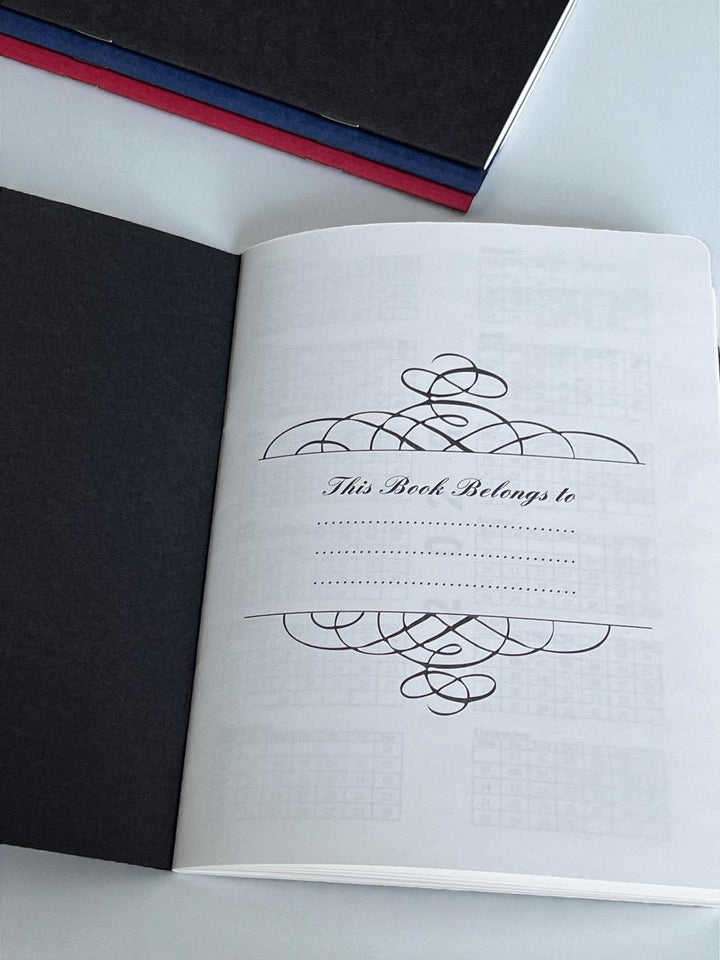 This Book Belongs to